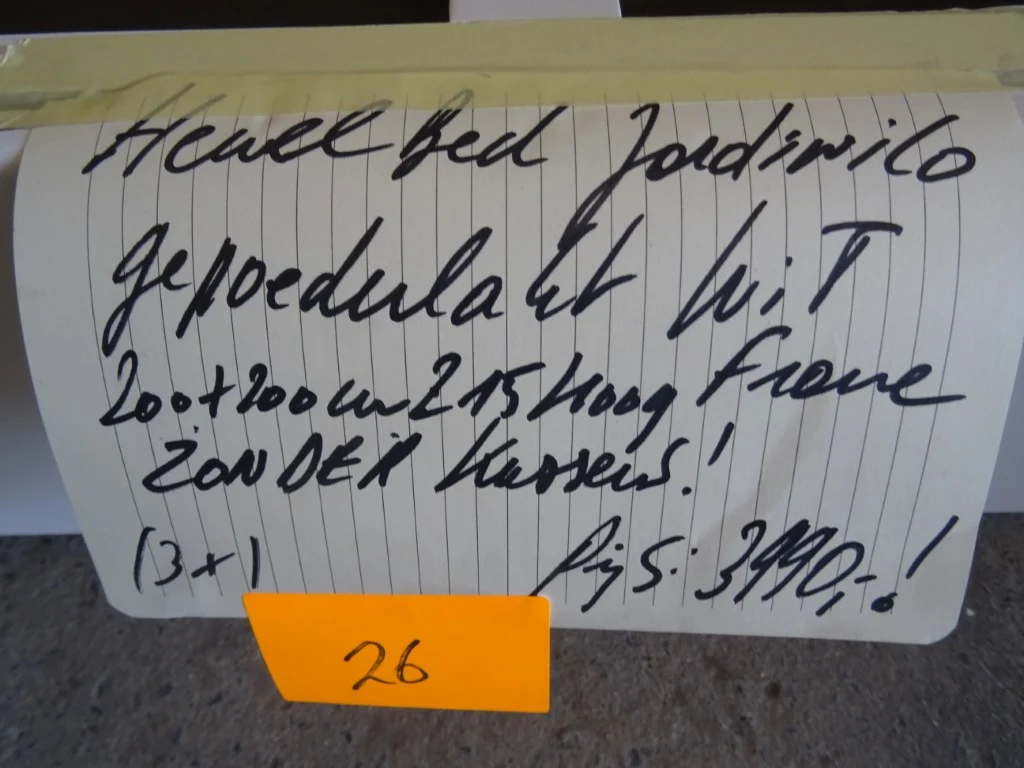 Hemel Bed Jardinico
gepoederlakt WiT
200+200cm 215 Hoog Frame
ZONDER Kussens!
(3x)
Prijs: 3990,-!
26